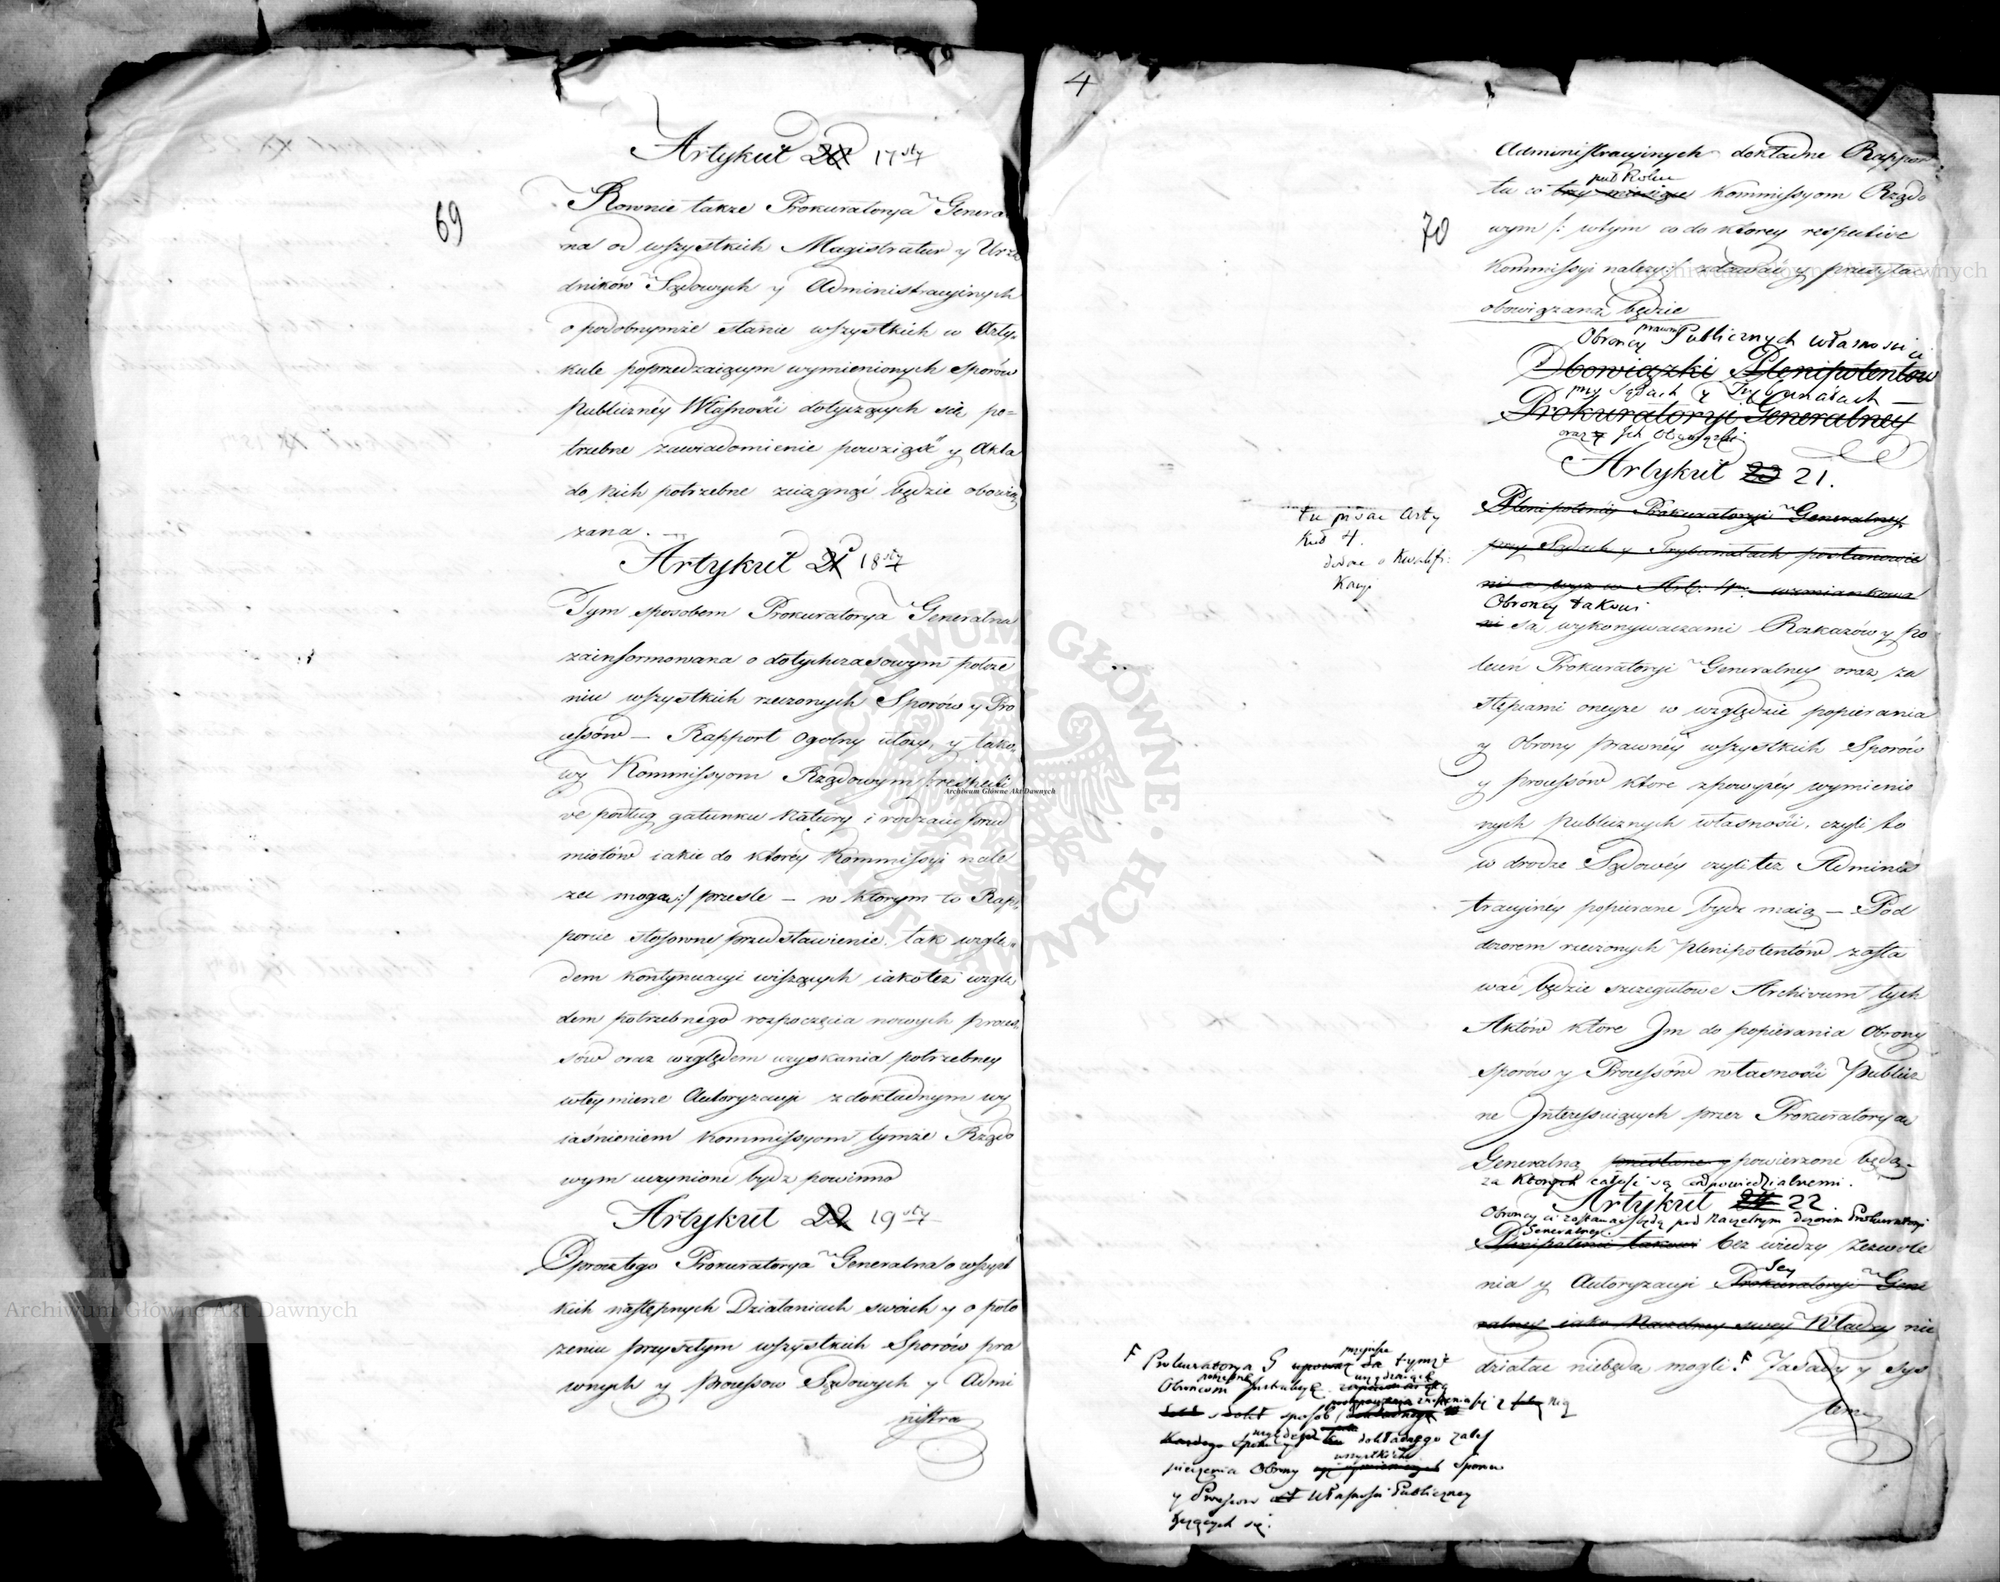 69
Artykuł 20 17sty
Rownie także Prokuratorya General
na od wszystkich Magistratur y Urzę
dników Sądowych y Administracyinych
o podobnymże stanie wszystkich w Arty-
kule poprzedzaiącym wymienionych Sporów
Publiczney Własności dotyczących się, po-
trzebne zawiadomienie powziąć y Akta
do nich potrzebne zciągnąć będzie obowią
zana.
Artykuł 21 18sty
Tym sposobem Prokuratorya Generalna
zainformowana o dotychczasowym położe
niu wszystkich rzeczonych Sporów y Pro
cessów — Rapport ogolny ułoży, y tako
wy Kommissyom Rządowym /: respecti
ve podług gatunku Natury i rodzaiu przed
miotów iakie do ktorey Kommissyi nale
żeć mogą :/ prześle — w ktorym to Rap
porcie stosowne przedstawienie tak wzglę
dem kontynuacyi wiszących iakoteż wzglę
dem potrzebnego rozpoczęcia nowych proces
sów oraz względem uzyskania potrzebney
w tey mierze Autoryzacyi z dokładnym wy
iaśnieniem Kommissyom tymże Rządo
wym uczynione bydz powinno
Artykuł 22 19sty
Oprocz tego Prokuratorya Generalna o wszyst
kich następnych Działaniach swoich y o poło
żeniu przyszłym wszystkich Sporów pra
wnych y Processow Sądowych y Admi
nistra
4
70
Administracyinych dokładne Rappor
ta co trzy miesiące puł Roku Kommissyom Rządo
wym /: w tym co do ktorey respective
Kommissyi należy :/ zdawać y przesyłać
obowiązana będzie
Obroncy prawni Publicznych własności
Obowiązki Plenipotentow
przy Sądach y Trybunałach —
Prokuratoryi Generalney
oraz Ich Obowiązki
Artykuł 23 21.
tu pisac Arty
kuł 4.
dodac o kwalifi
kacyi
Plenipotenci Prokuratoryi Generalney
przy Sądach y Trybunałach postanowie
ni a wyż w Art. 4m wzmiankowa
Obroncy takowi
ni są wykonywaczami Rozkazów y Po
leceń Prokuratoryi Generalney oraz za
stępcami oneyże w względzie popierania
y Obrony prawney wszystkich Sporów
y processów ktore z powyżey wymienio
nych publicznych własności, czyli to
w drodze Sądowey czyli też Adminis
tracyiney popierane bydz maią — Pod
dozorem rzeczonych Plenipotentów zosta
wać będzie szczegułowe Archivum tych
Aktów ktore Im do popierania Obrony
sporów y Processów własności Publicz
ne Interessuiących przez Prokuratorya
Generalną przesłane y powierzone będą —
za ktorych całość są odpowiedzialnemi.
Artykuł 24 22.
Obroncy ci zostawać będą pod Naczelnym dozorem Prokuratoryi
Generalney.
Plenipotenci takowi bez wiedzy Zezwole
nia y Autoryzacyi Jey Prokuratoryi Gene
ralney iako Naczelney swey Władzy nic
działać niebędą mogli. F Zasady y Sys
tema
F Prokuratorya G przyięte da tymże
Obroncom potrzebne Instrukcye
sposób
każdego dokładnego zabes
pieczenia Obrony wszystkich Sporow
y Processow Własności Publiczney
tyczących się.
Archiwum Główne Akt Dawnych
Archiwum Główne Akt Dawnych
Archiwum Główne Akt Dawnych
ARCHIWUM GŁÓWNE AKT DAWNYCH